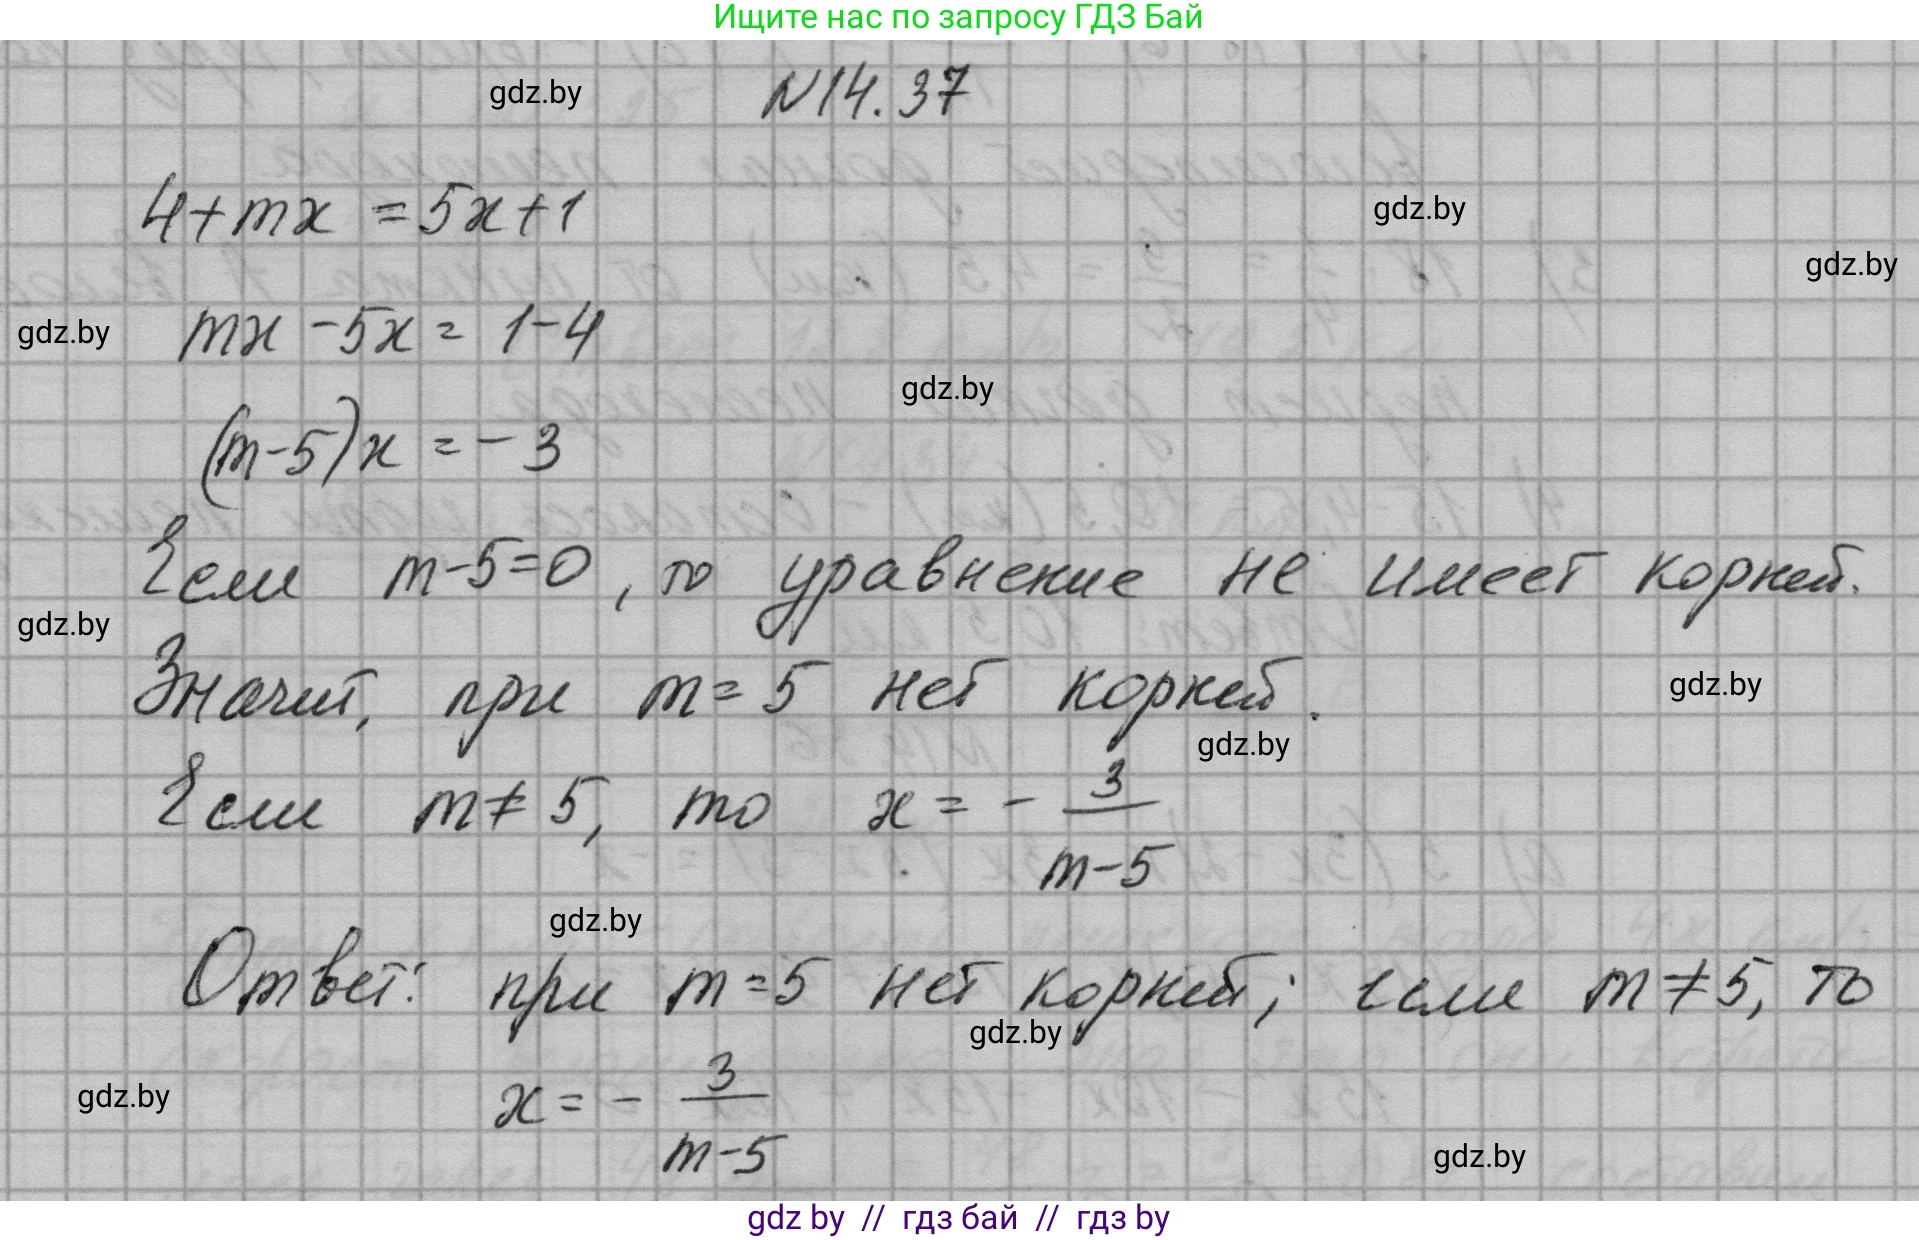 Ищите нас по запросу ГДЗ Бай
gdz.by
N14.37
4+mx = 5x+1
gdz.by
gdz.by
mx - 5x = 1-4
gdz.by
gdz.by
(m-5)x = -3
Если m-5=0, то уравнение не имеет корней.
gdz.by
Значит, при m=5 нет корней.
gdz.by
gdz.by
Если m≠5, то x = - 3/(m-5)
gdz.by
Ответ: при m=5 нет корней; если m≠5, то
gdz.by
x = - 3/(m-5)
gdz.by
gdz.by
gdz by // гдз бай // гдз by